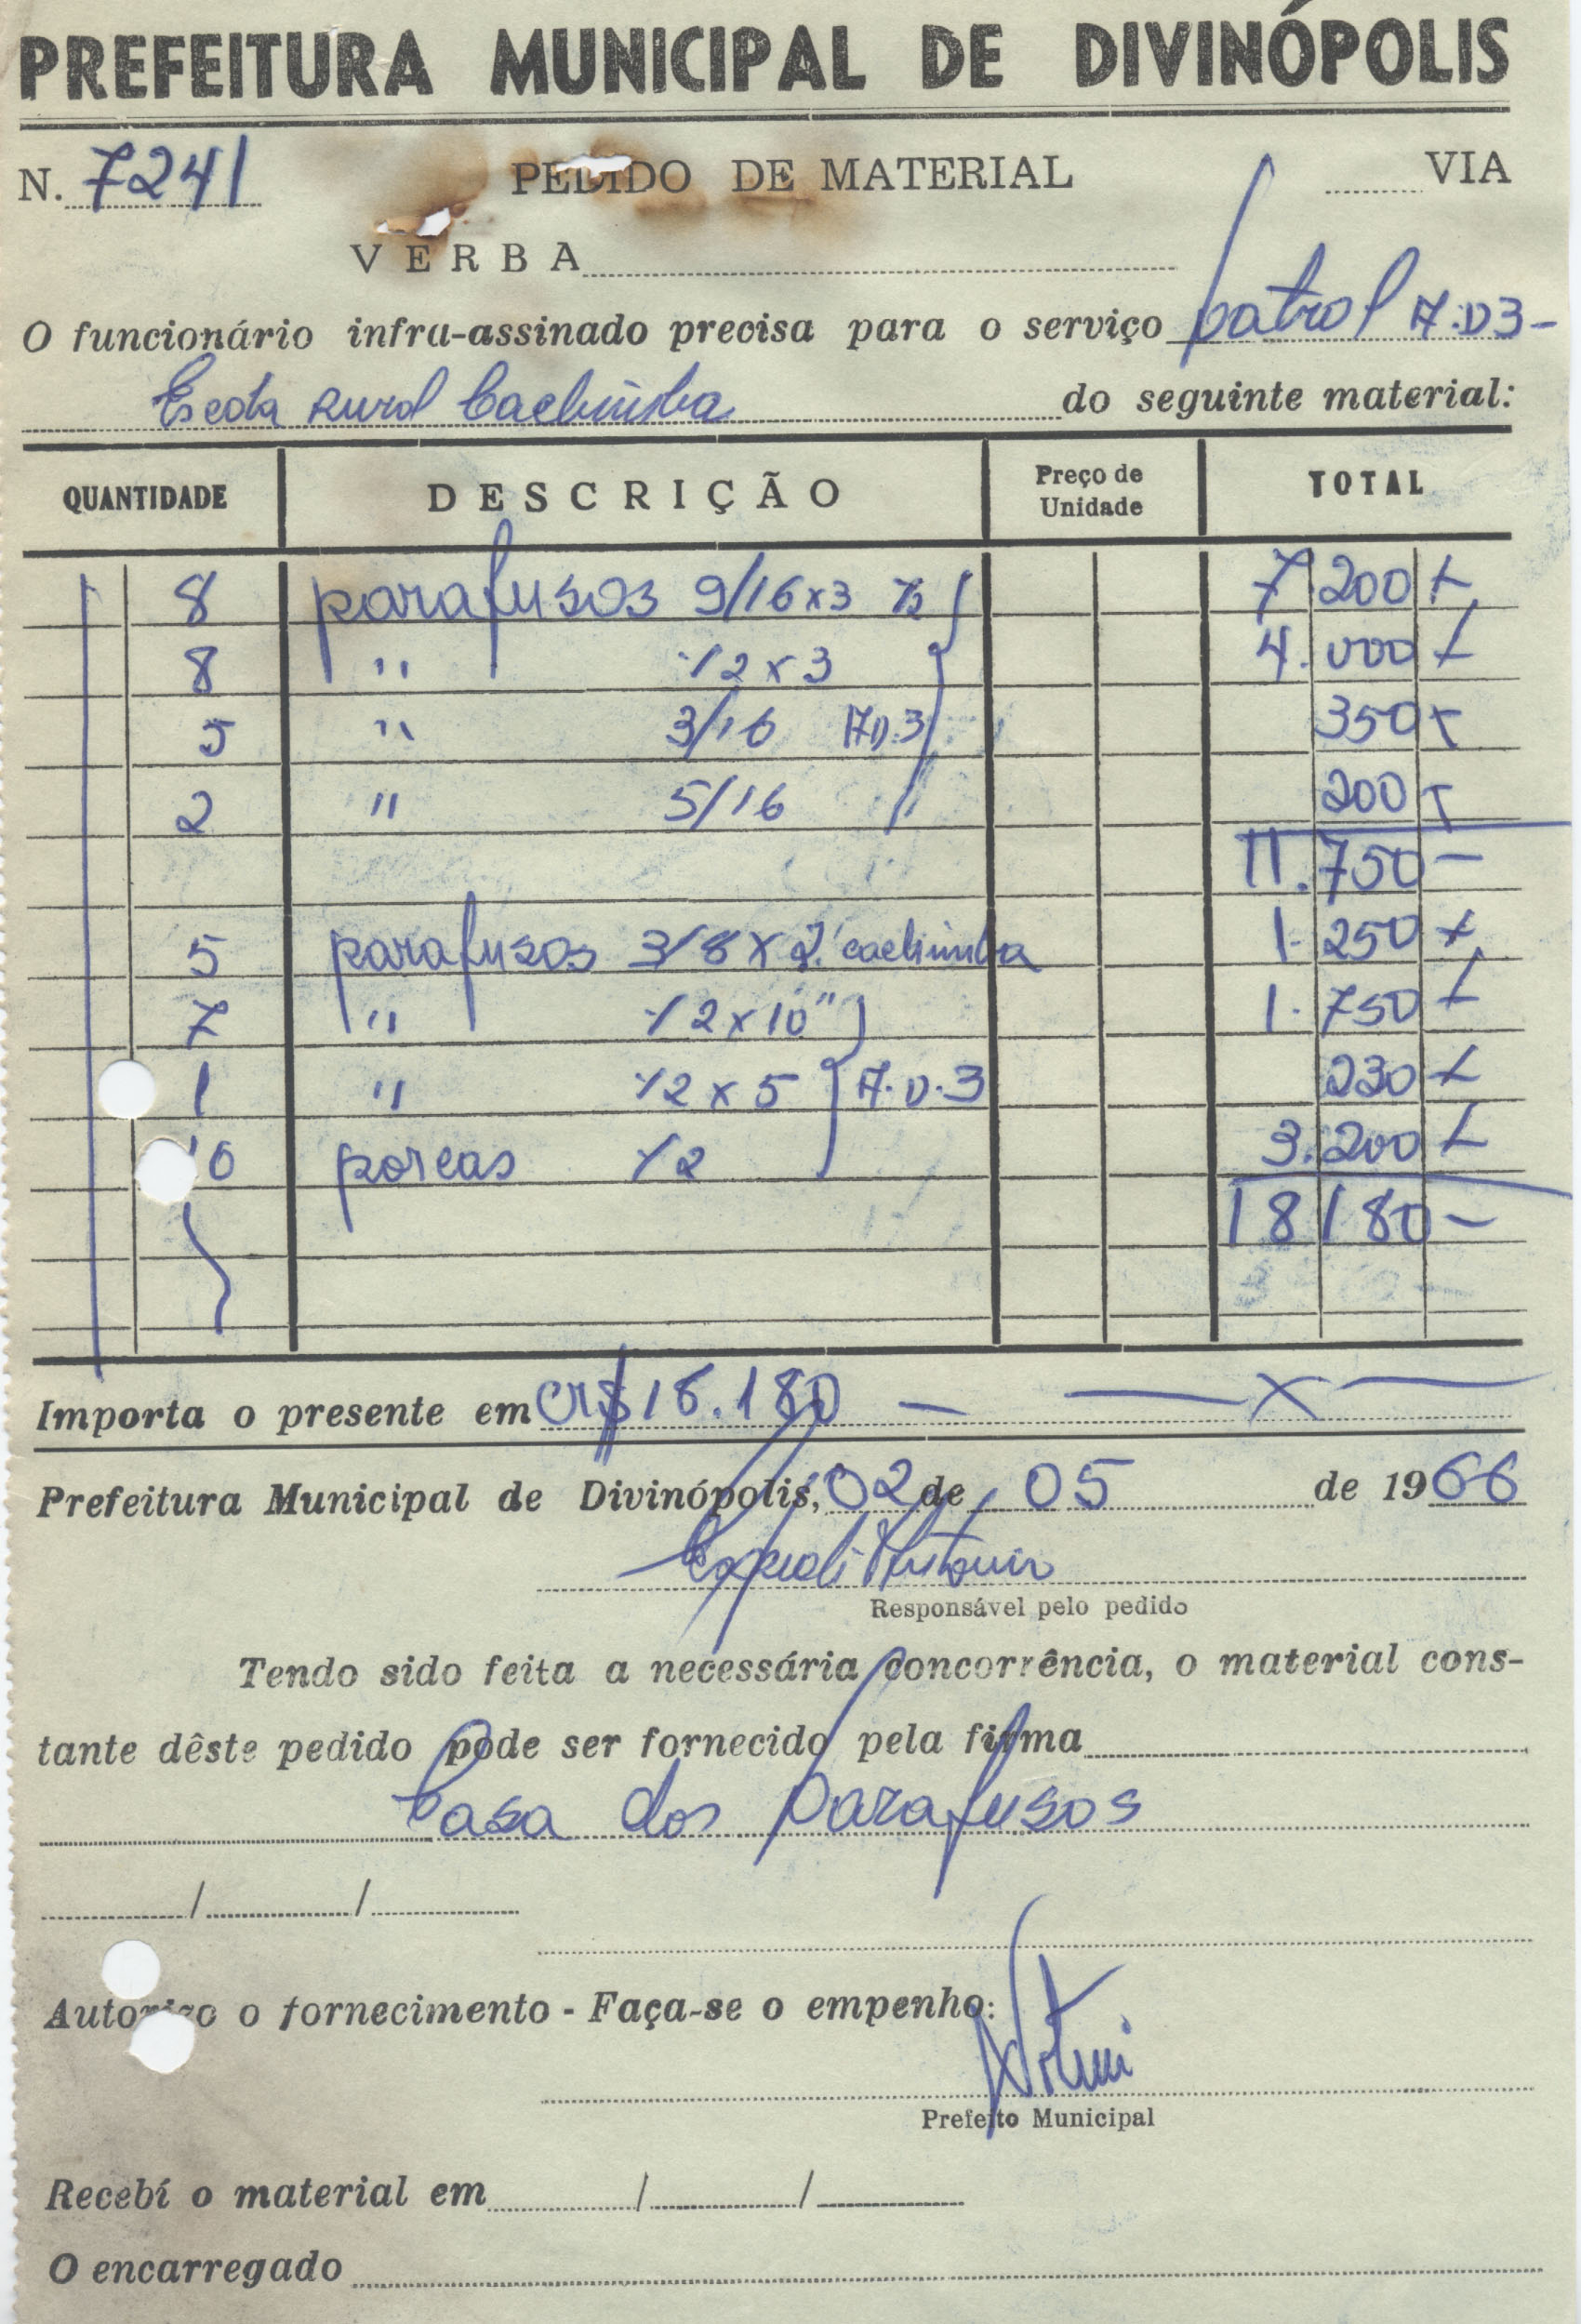 PREFEITURA MUNICIPAL DE DIVINÓPOLIS
N. 7241 PEDIDO DE MATERIAL VIA
VERBA
O funcionário infra-assinado precisa para o serviço patrol A.D3-
Escola Rural Cachimba do seguinte material:
QUANTIDADE DESCRIÇÃO Preço de Unidade TOTAL
8 parafusos 9/16x3 7 200
8 " 1/2 x 3 4.000
5 " 3/16 A.D.3 350
2 " 5/16 200
11.750 -
5 parafusos 3/8 x 2" cachimba 1.250
7 " 1/2 x 10" 1.750
1 " 1/2 x 5 A.D.3 230
10 porcas 1/2 3.200
18 180 -
Importa o presente em CR$ 18.180 — — x —
Prefeitura Municipal de Divinópolis, 02 de 05 de 1966
Responsável pelo pedido
Tendo sido feita a necessária concorrência, o material cons-
tante dêste pedido pode ser fornecido pela firma
Casa dos Parafusos
/ /
Autorizo o fornecimento - Faça-se o empenho:
Prefeito Municipal
Recebí o material em / /
O encarregado